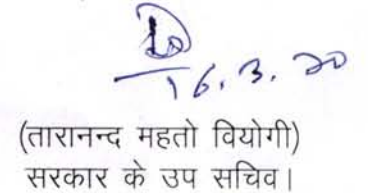 16.3.20
(तारानन्द महतो वियोगी)
सरकार के उप सचिव।